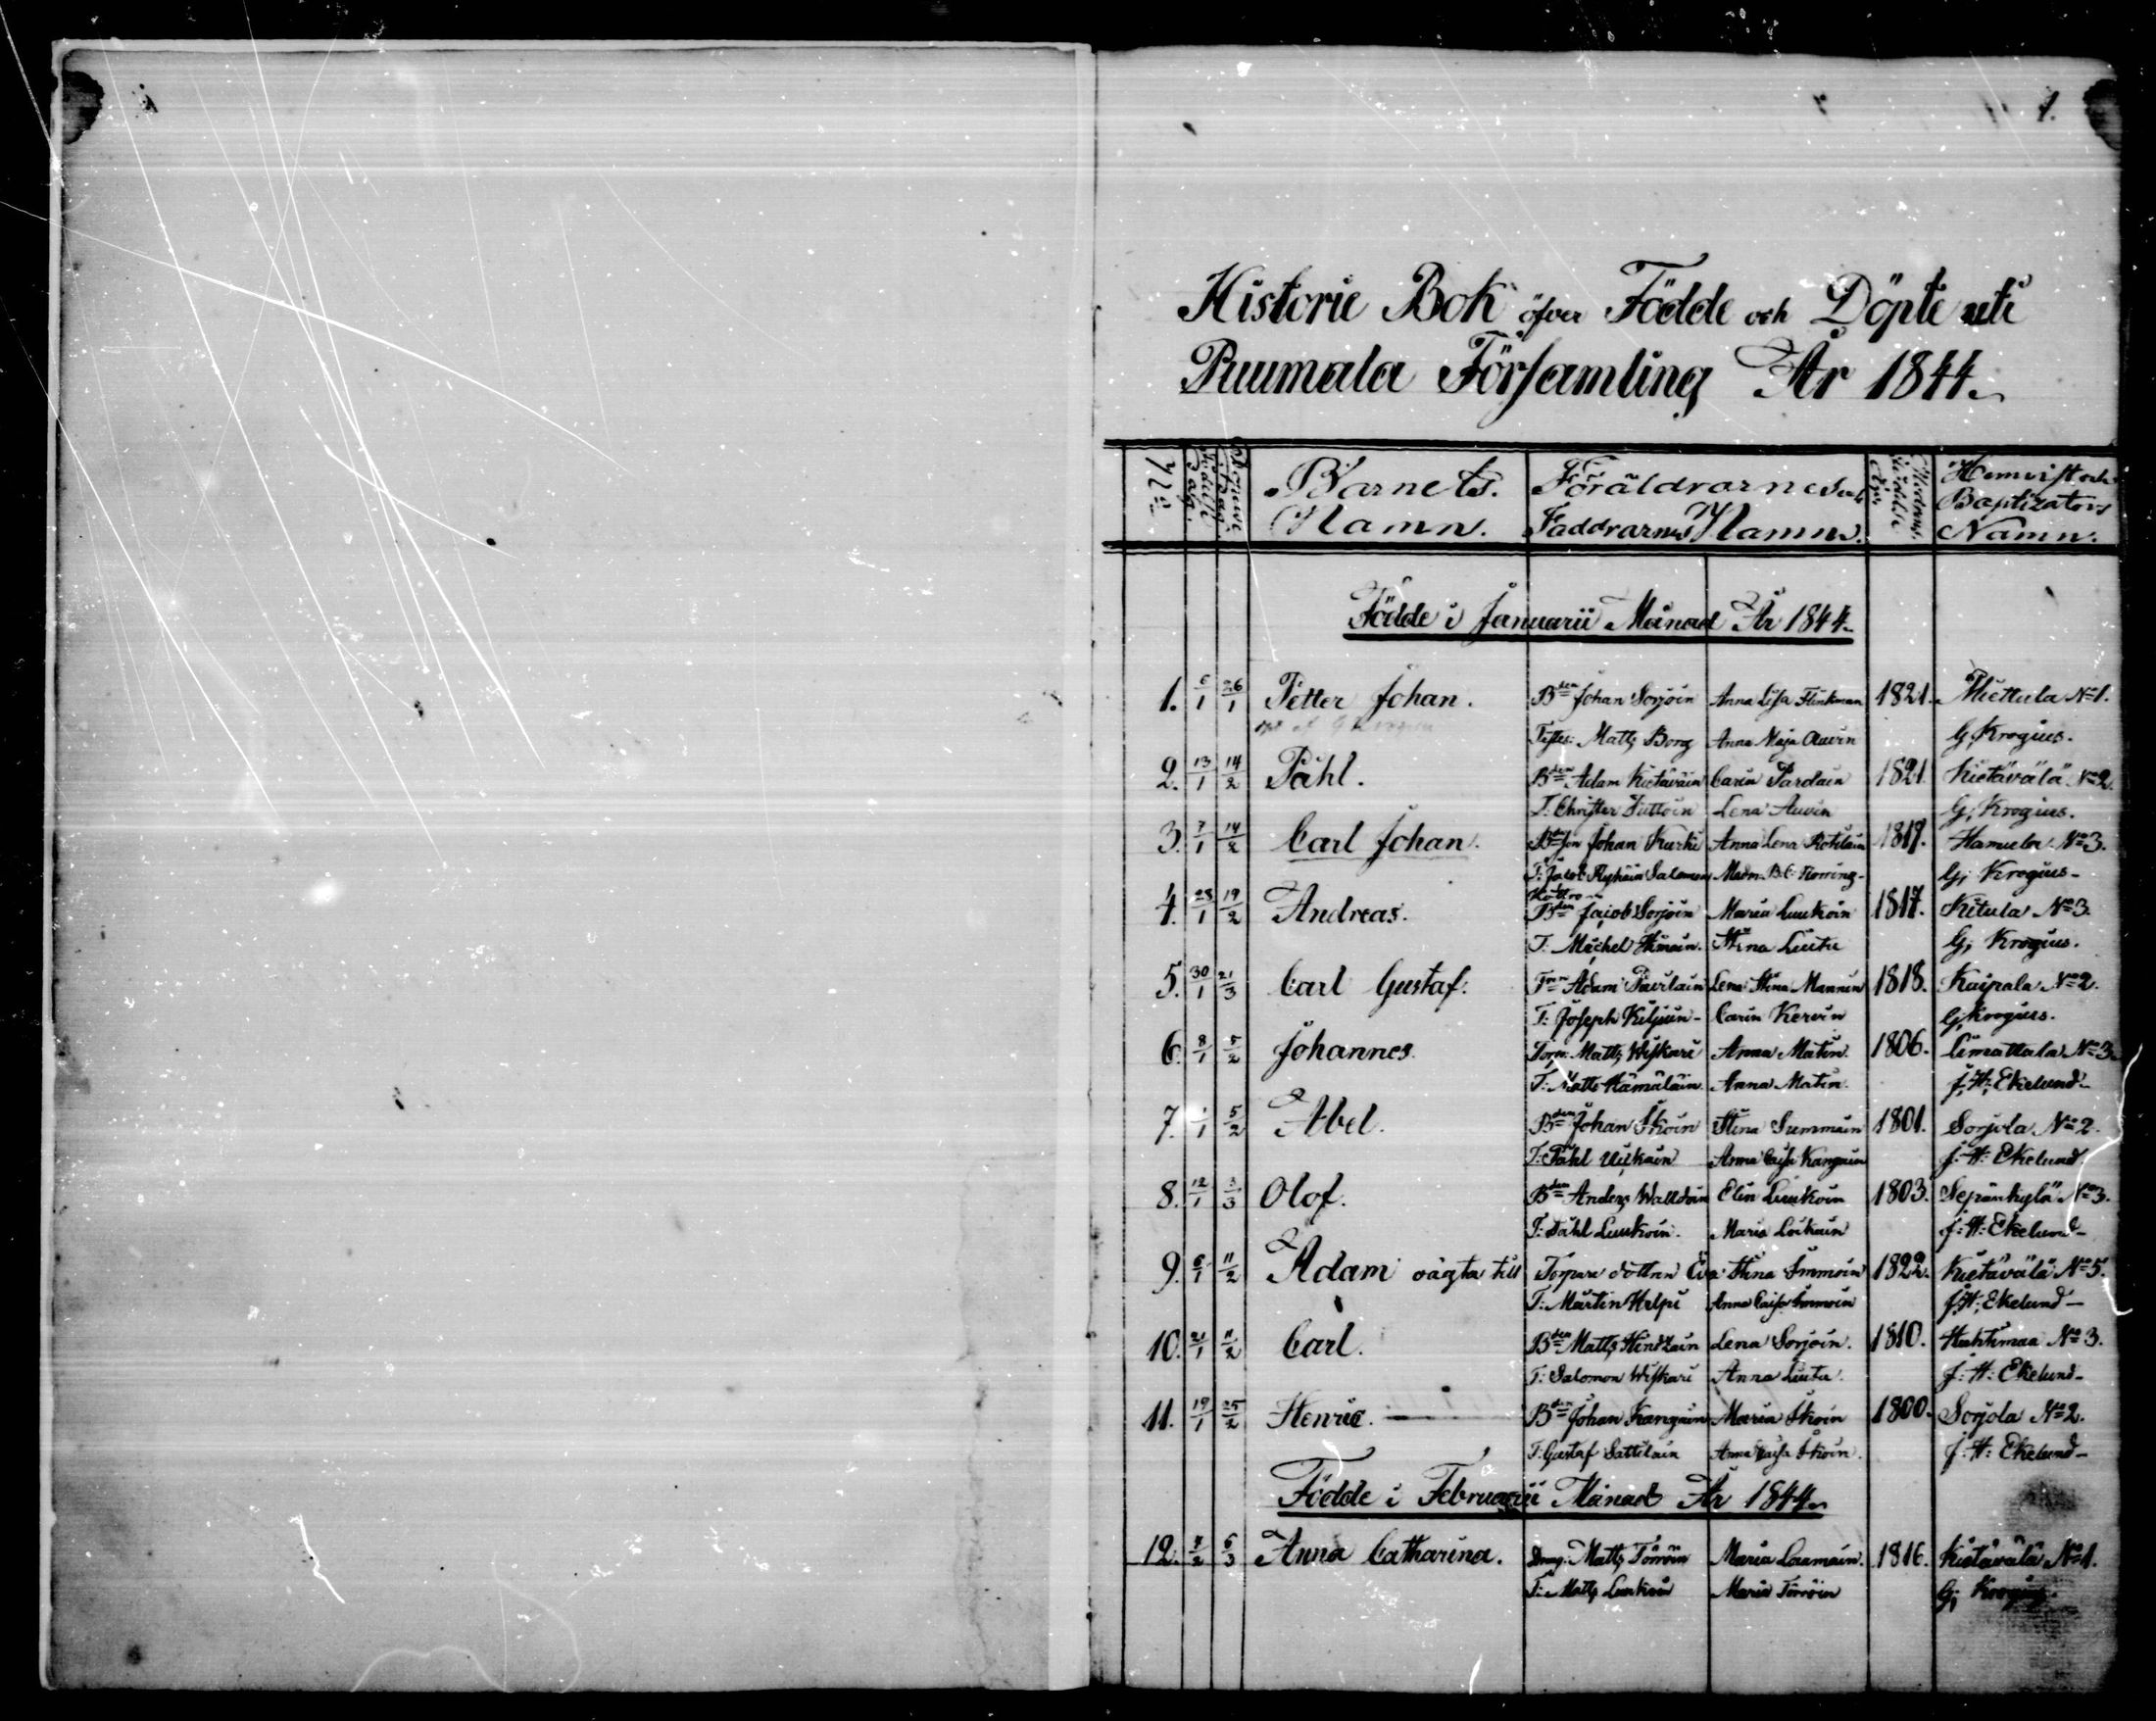 1.
Historie Bok öfver Födde och Döpte uti
Puumala Församling År 1844.
No
Barnets. Namn.
Föräldrarnes och Faddrarnes Namn.
Hemvist och Baptizators Namn.
Födde i Januarii Månad År 1844.
1. 6/1 26/1 Petter Johan. Bden Johan Sorjoin Anna Lisa Flinkman 1821. Miettula No 1.
Testes: Matts Borg Anna Maja Auvin G; Krogius.
2. 13/1 14/2 Påhl. Bden Adam Kietäväin Carin Pardain 1821. Kietävälä No 2.
T: Christer Luttoin Lena Auvin G; Krogius.
3. 7/1 14/2 Carl Johan. Bde Son Johan Kurki Anna Lena Rohlain Hamula No 3.
T: Jacob Ryhäin Salomon Madm. B. C. Norring G; Krogius
4. 23/1 19/2 Andreas. Bden Jacob Sorjoin Maria Luukoin 1817. Kitula No 3.
T: Michel Stina Liuta G; Krogius.
5. 30/1 21/3 Carl Gustaf. Adam Pavilain Lena Stina Mannin 1818. Kaipala No 2.
T: Joseph Kiljuin Carin Kervin G; Krogius.
6. 8/1 5/2 Johannes. Torp: Matts Wiskari Anna Matin 1806. Limattala No 3.
T: Matts Hämäläin Anna Matin. J: H: Ekelund
7. 1/1 5/2 Abel. Bden Johan Ikoin Stina Summain 1801. Sorjola No 2.
T: Påhl Uikain Anna Caisa Kangain J: H: Ekelund
8. 12/1 3/3 Olof. Bden Anders Walldoin Elin Luukoin 1803. Sepänkylä No 3.
T: Påhl Luukoin. Maria Loikain J: H: Ekelund
9. 6/1 11/2 Adam oägta till Torpare dottren Eva Stina Immoin 1822. Kietävälä No 5.
T: Mårtin Helpi Anna Caisa Immoin J: H: Ekelund
10. 21/1 11/2 Carl. Bden Matts Hintzain Lena Sorjoin. 1810. Huhtimaa No 3.
T: Salomon Wiskari Anna Liuta. J: H: Ekelund
11. 19/1 25/2 Henric. Bden Johan Kangain Maria Ikoin 1800. Sorjola No 2.
T: Gustaf Sattilain Anna Caisa Ikoin. J: H: Ekelund
Födde i Februarii Månad År 1844.
12. 7/2 6/3 Anna Catharina. Dräng: Matts Törröin Maria Laamain. 1816. Kietävälä No 1.
T: Matts Luukoin Maria Törröin G; Krogius.